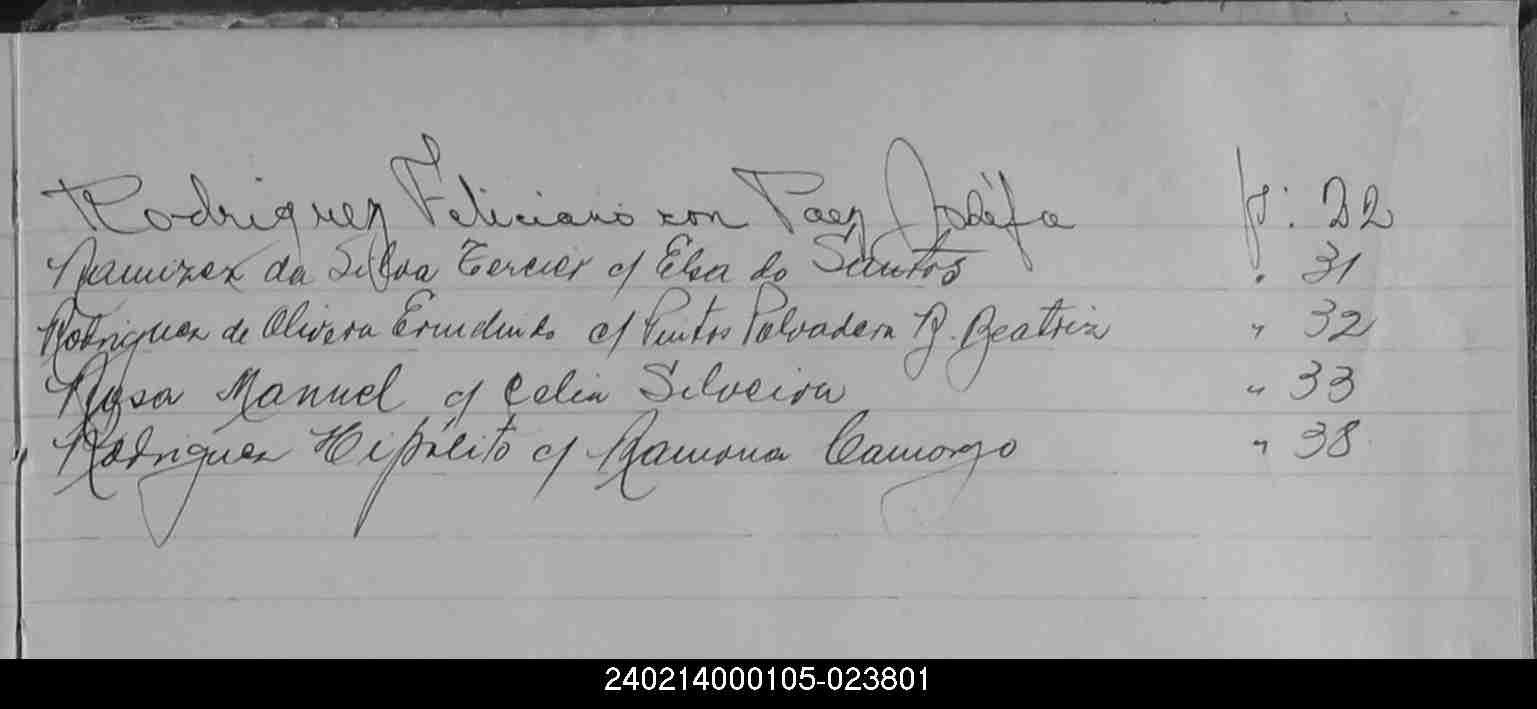 Rodriguez Feliciano con Paez Joséfa p: 22
Ramirez da Silva Tercier c/ Elsa do Santos . 31
Rodriguez de Olivera c/ Puntos Polvadera B. Beatriz " 32
Rosa Manuel c/ Celia Silveira " 33
Rodriguez Hipólito c/ Ramona Camargo " 38
240214000105-023801